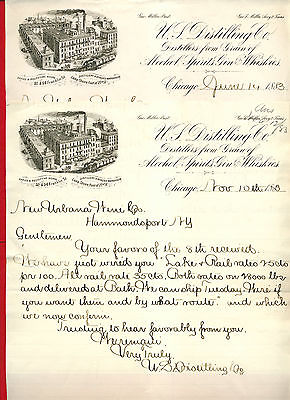 Geo. Miller, Prest.
Geo. L. Miller, Secy & Treas.
U.S. Distilling Co.
Distillers from Grain of
Alcohol, Spirits, Gin & Whiskies
Chicago, June 14 1883
U.S. Distilling Co.
Distillers from Grain of
Alcohol, Spirits, Gin & Whiskies
Chicago, Nov 10th 1883
New Urbana Wine Co.
Hammondsport NY
Gentlemen
Your favor of the 8th received.
We have just wired you "Lake & Rail rates 25cts
per 100. All rail rate 35cts. Both rates on 28000 lbs
and delivered at Bath. We can ship Tuesday. Wire if
you want them and by what route." and which
we now confirm.
Trusting to hear favorably from you.
We remain
Very Truly,
U.S. Distilling Co